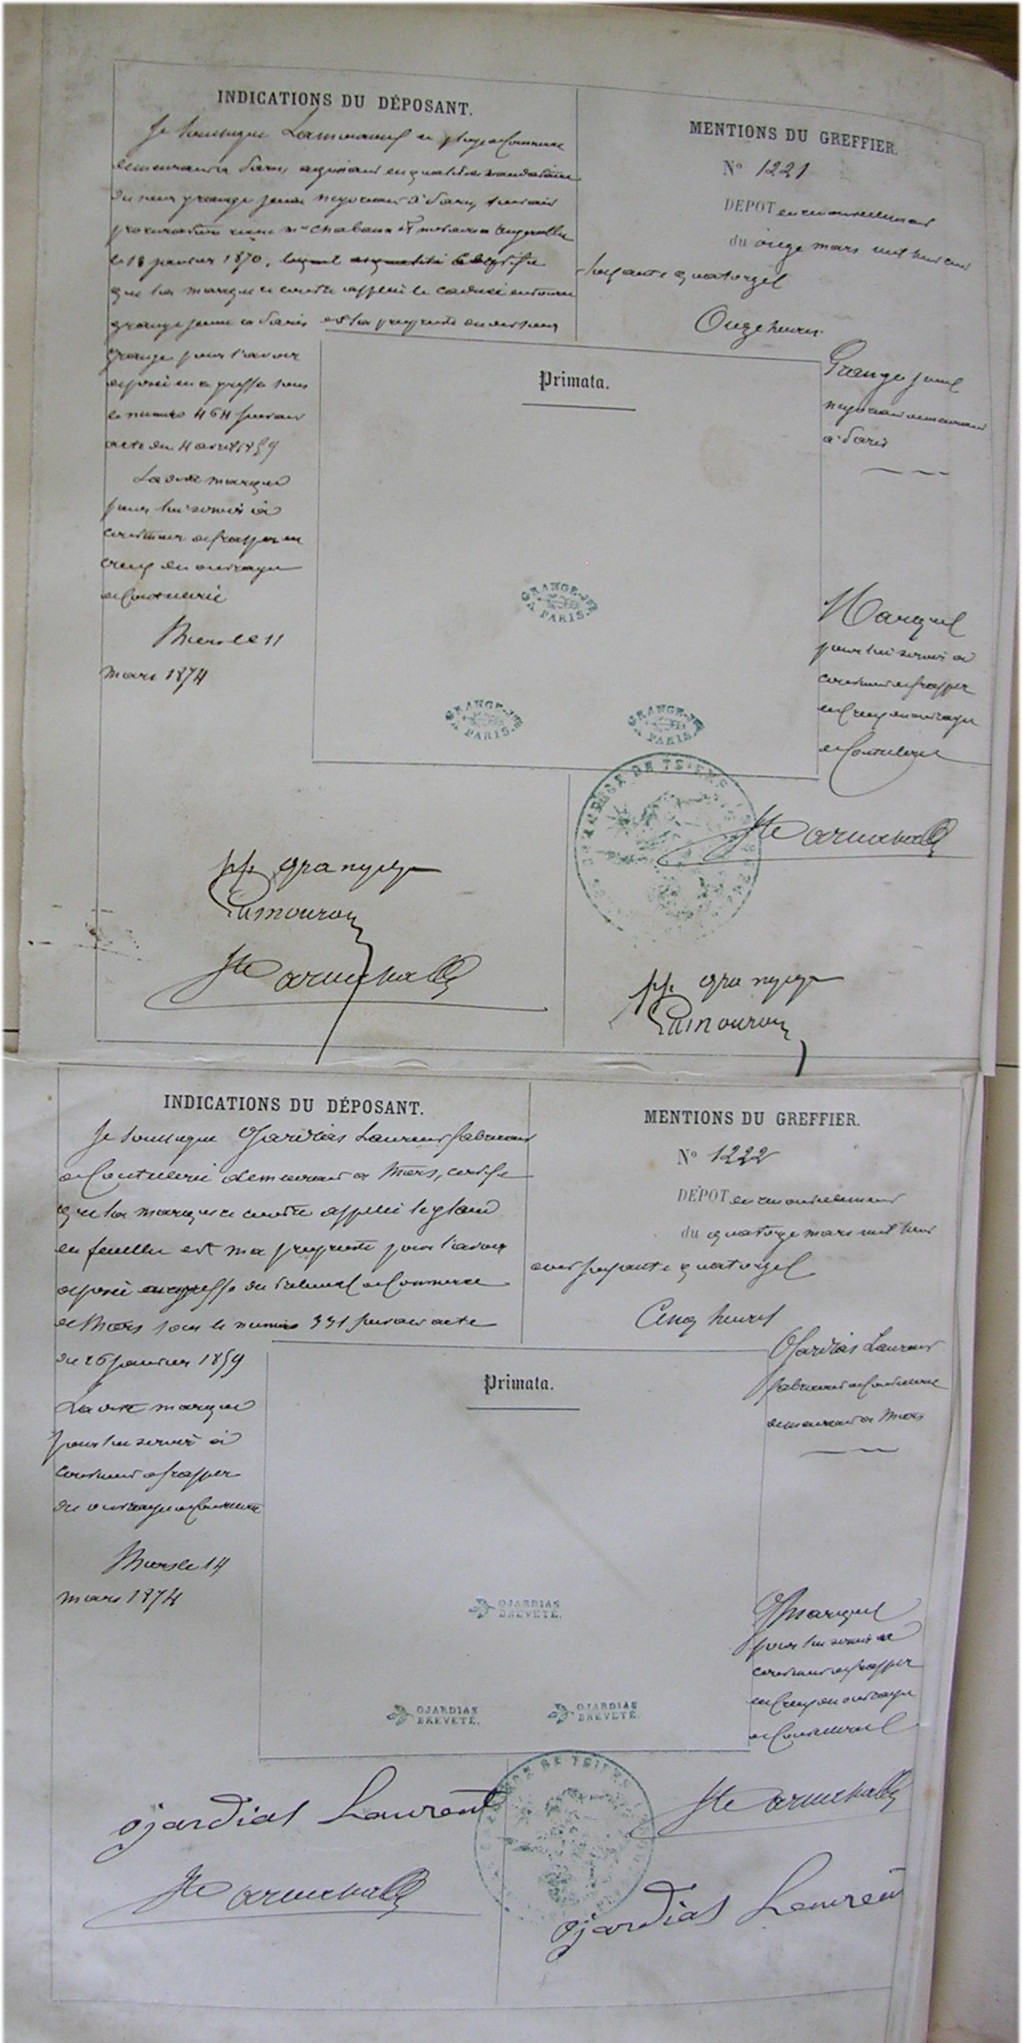 INDICATIONS DU DÉPOSANT.
Je soussigné Lamouroux employé de Commerce
demeurant à Paris agissant en qualité de mandataire
du sieur Grange jeune négociant à Paris, suivant
procuration reçue Me Chabaux et notaire à
le 18 janvier 1870, certifie
que la marque ci contre appelée le entouré
grange jeune à Paris est la propriété du dit sieur
grange pour l'avoir
déposée au greffe sous
le numéro 464 suivant
acte du 4 avril 1859
La dite marque
pour lui servir à
continuer de frapper en
creux des ouvrages
de Coutellerie
Thiers le 11
mars 1874
MENTIONS DU GREFFIER.
No 1221
DÉPOT en renouvellement
du onze mars mil huit cent
soixante quatorze
Onze heures
Grange jeune
négociant demeurant
à Paris
Primata.
GRANGE-JNE
A PARIS.
GRANGE-JNE
A PARIS.
GRANGE-JNE
A PARIS.
Marque
pour lui servir à
continuer de frapper
en Creux des ouvrages
de Coutellerie
DE THIERS
pp. grange
Lamouroux
pp. grange
Lamouroux
INDICATIONS DU DÉPOSANT.
Je soussigné Ojardias Laurent fabricant
de Coutellerie demeurant à Thiers, certifie
que la marque ci contre appelée le gland
en feuilles est ma propriété pour l'avoir
déposée au greffe du Tribunal de Commerce
de Thiers sous le numéro 331 suivant acte
du 26 janvier 1859
La dite marque
pour lui servir à
continuer de frapper
des ouvrages de Coutellerie
Thiers le 14
mars 1874
MENTIONS DU GREFFIER.
No 1222
DÉPOT en renouvellement
du quatorze mars mil huit
cent soixante quatorze
Cinq heures
Ojardias Laurent
fabricant de Coutellerie
demeurant à Thiers
Primata.
OJARDIAS
BREVETÉ.
OJARDIAS
BREVETÉ.
OJARDIAS
BREVETÉ.
Marque
pour lui servir à
continuer de frapper
en Creux des ouvrages
de Coutellerie
DE THIERS
ojardias Laurent
ojardias Laurent